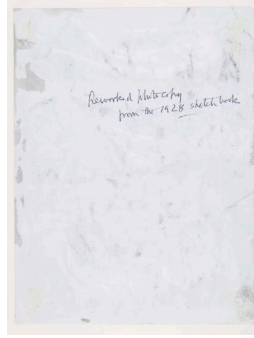 Reworked photocopy
from the 1928 sketch book